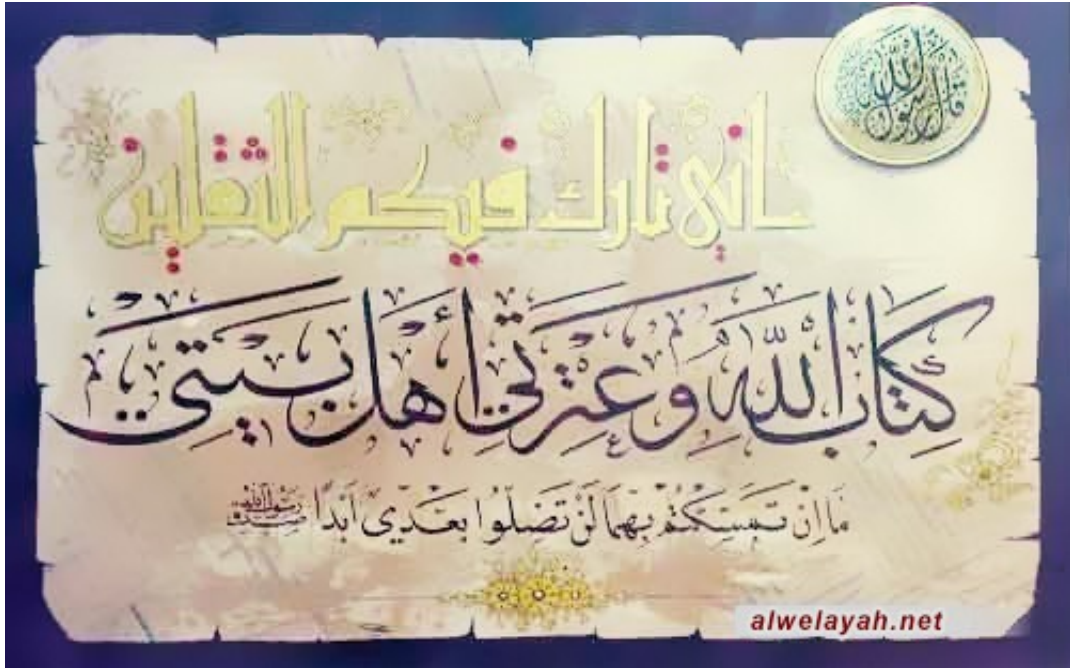 قال رسول الله
إني تارك فيكم الثقلين
كتاب الله وعترتي أهل بيتي
ما إن تمسكتم بهما لن تضلوا بعدي أبدا رسول الله
alwelayah.net